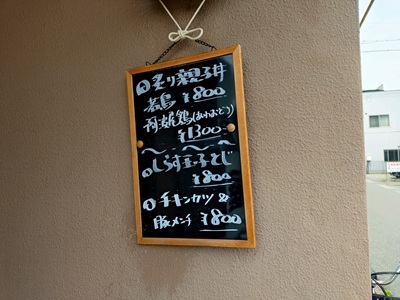 炙り親子丼
若鶏 ¥800
阿波尾鶏(あわおどり)
¥1300
〜〜〜〜
しらす玉子とじ
¥800
チキンカツ&
豚メンチ ¥800